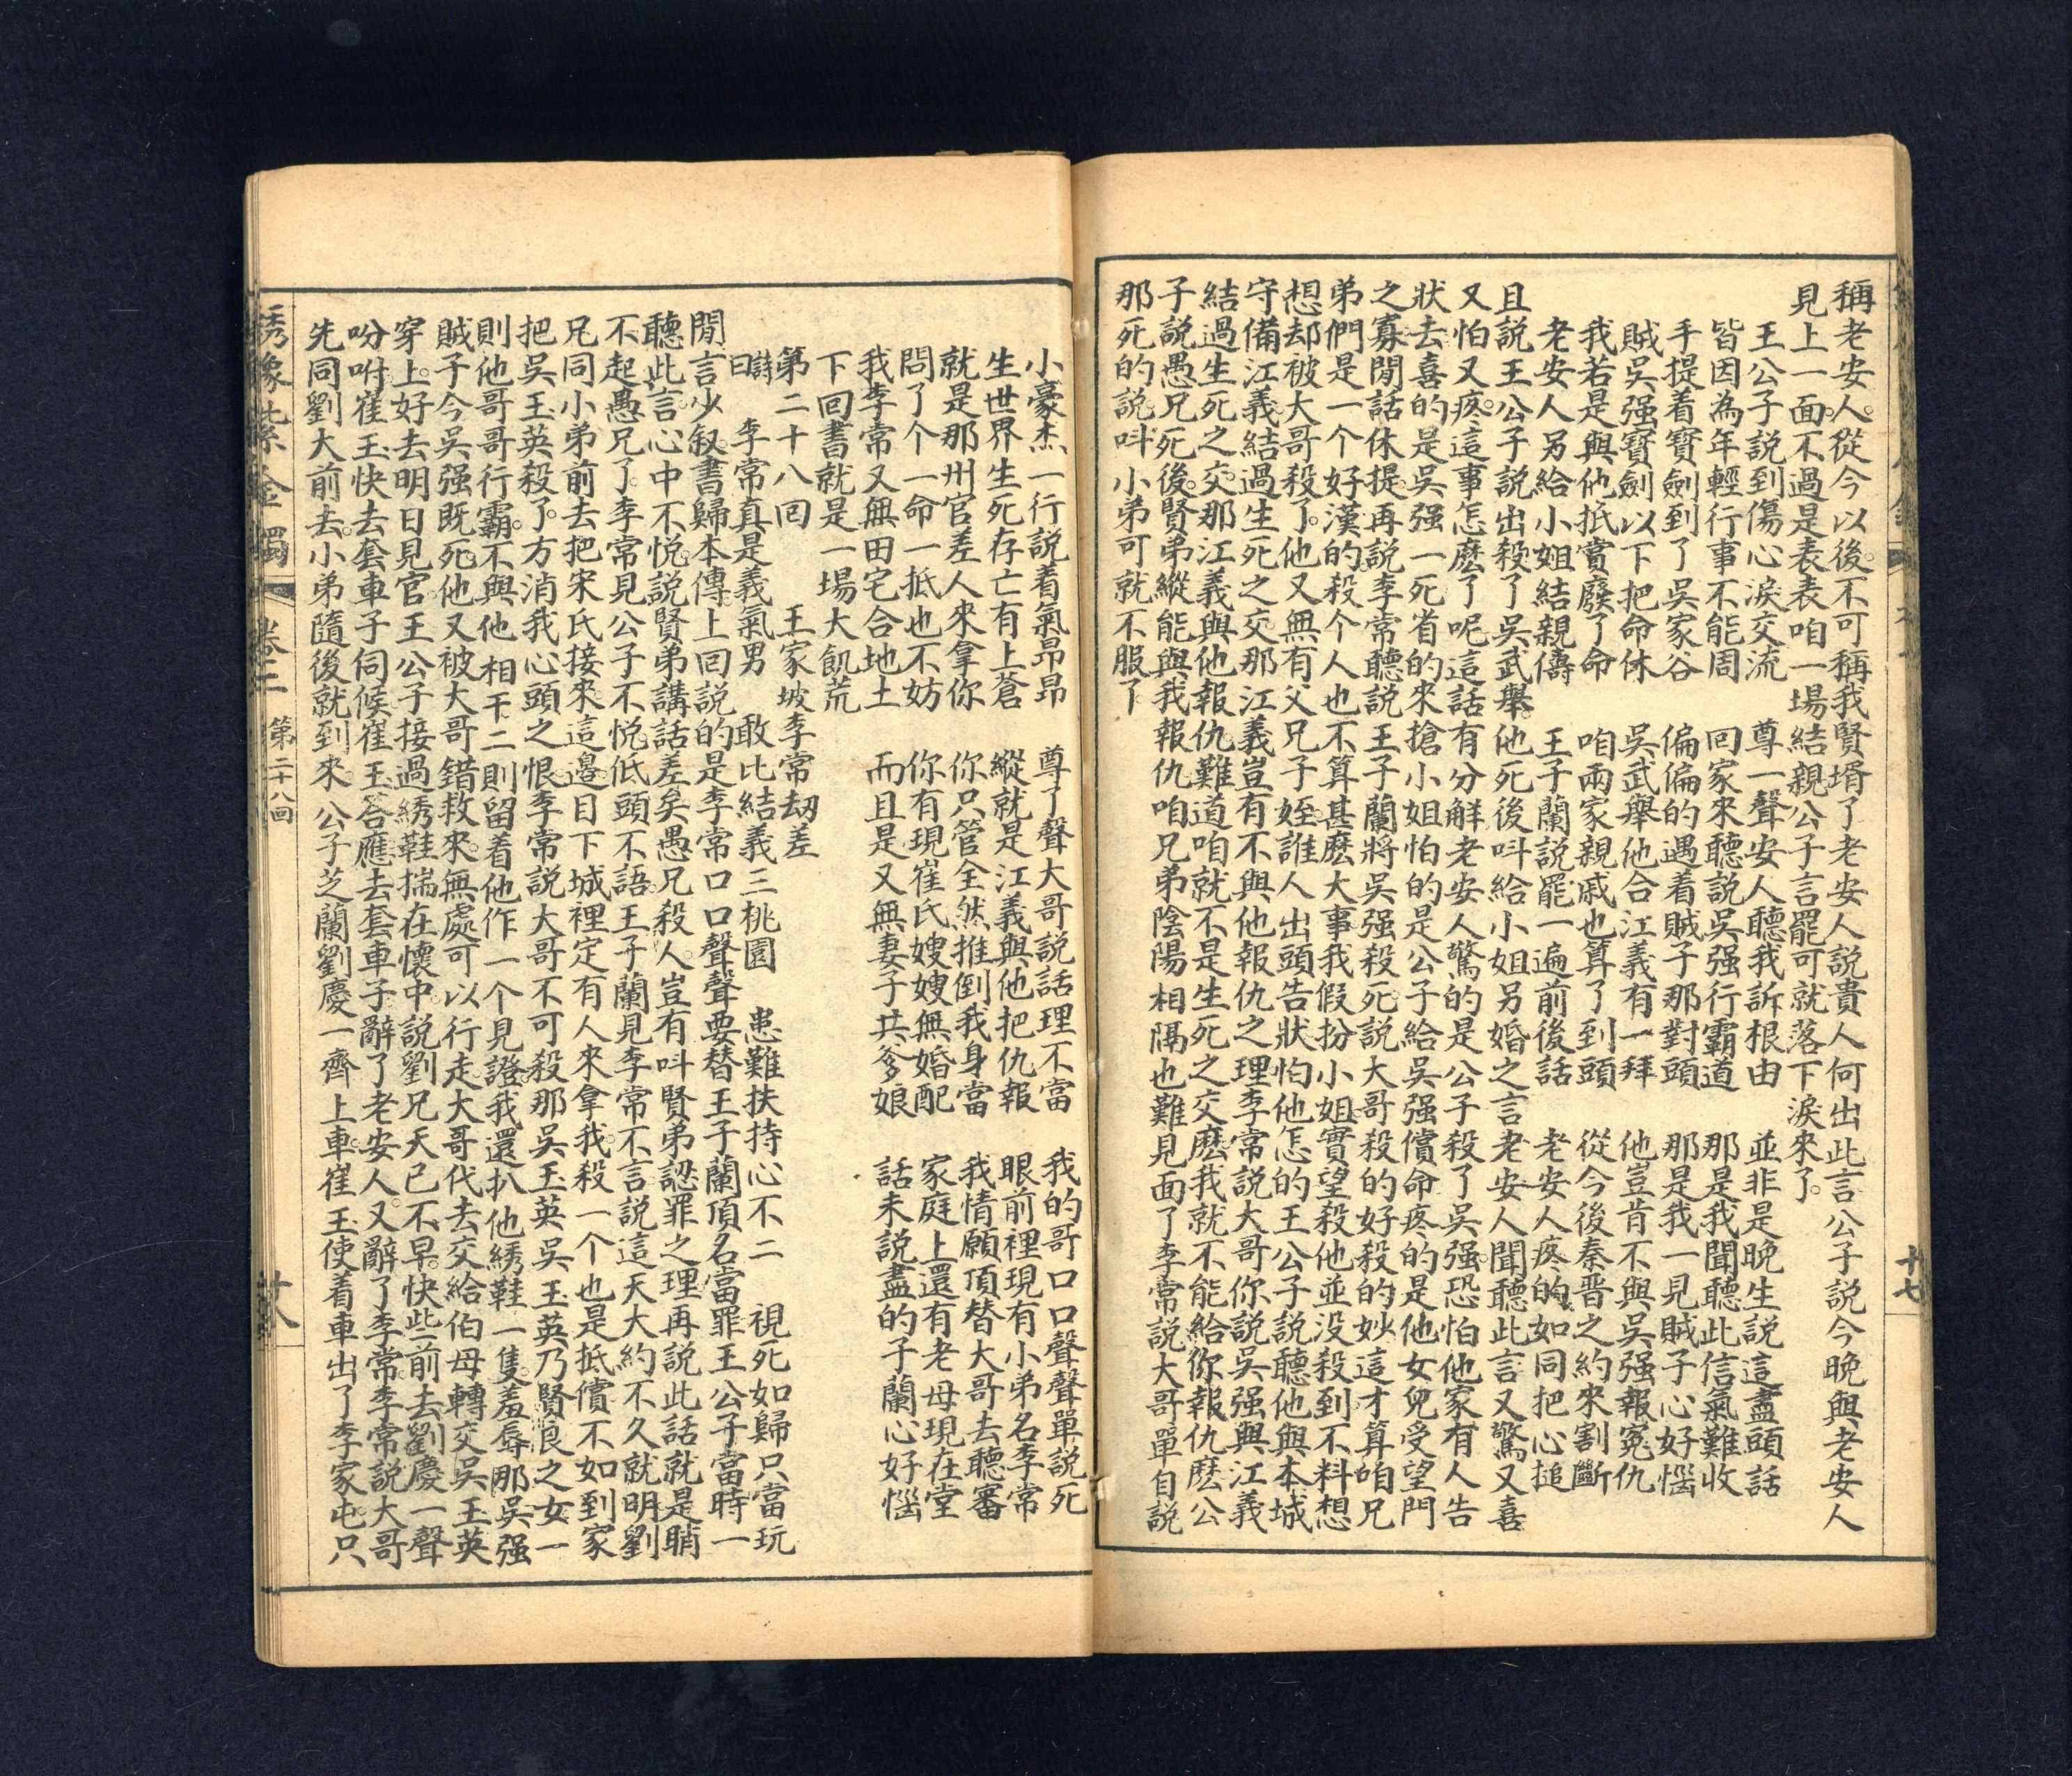 稱老安人從今以後不可稱我賢壻了老安人說貴人何出此言公子說今晚與老安人
見上一面不過是表表咱一場結親公子言罷可就落下淚來了
王公子說到傷心淚交流　尊一聲安人聽我訴根由　並非是晚生說這盡頭話
皆因為年輕行事不能周　回家來聽說吳强行霸道　那是我聞聽此信氣難收
手提着寶劍到了吳家谷　偏偏的遇着賊子那對頭　那是我一見賊子心好惱
賊吳强寶劍以下把命休　吳武舉他合江義有一拜　他豈肯不與吳强報冤仇
我若是與他抵賞廢了命　咱兩家親戚也算了到頭　從今後秦晋之約來割斷
老安人另給小姐結親儔　王子蘭說罷一遍前後話　老安人疼的如同把心搥
且說王公子說出殺了吳武舉他死後呌給小姐另婚之言老安人聞聽此言又驚又喜
又怕又疼這事怎麽了呢這話有分解老安人驚的是公子殺了吳强恐怕他家有人告
狀去喜的是吳强一死省的來搶小姐怕的是公子給吳强償命疼的是他女兒受望門
之寡閒話休提再說李常聽說王子蘭將吳强殺死說大哥殺的好殺的妙這才算咱兄
弟們是一个好漢的殺个人也不算甚麽大事我假扮小姐實望殺他並没殺到不料想
想却被大哥殺了他又無有父兄子姪誰人出頭告狀怕他怎的王公子說聽他與本城
守備江義結過生死之交那江義豈有不與他報仇之理李常說大哥你說吳强與江義
結過生死之交那江義與他報仇難道咱就不是生死之交麽我就不能給你報仇麽公
子說愚兄死後賢弟縱能與我報仇咱兄弟陰陽相隔也難見面了李常說大哥單自說
那死的說呌小弟可就不服了
十七
小豪杰一行說着氣昂昂　尊了聲大哥說話理不當　我的哥口口聲聲單說死
生世界生死存亡有上蒼　縱就是江義與他把仇報　眼前裡現有小弟名李常
就是那州官差人來拿你　你只管全然推倒我身當　我情願頂替大哥去聽審
問了个一命一抵也不妨　你有現崔氏嫂嫂無婚配　家庭上還有老母現在堂
我李常又無田宅合地土　而且是又無妻子共爹娘　話未說盡的子蘭心好惱
下回書就是一場大飢荒
第二十八回　王家坡李常刼差
詩曰　李常真是義氣男　敢比結義三桃園　患難扶持心不二　視死如歸只當玩
閒言少叙書歸本傳上回說的是李常口口聲聲要替王子蘭頂名當罪王公子當時一
聽此言心中不悦說賢弟講話差矣愚兄殺人豈有呌賢弟認罪之理再說此話就是賭
不起愚兄了李常見公子不悦低頭不語王子蘭見李常不言說這天大約不久就明劉
兄同小弟前去把宋氏接來這邊目下城裡定有人來拿我殺一个也是抵償不如到家
把吳玉英殺了方消我心頭之恨李常說大哥不可殺那吳玉英吳玉英乃賢良之女一
則他哥哥行霸不與他相干二則留着他作一个見證我還扒他綉鞋一隻羞辱那吳强
賊子今吳强既死他又被大哥錯救來無處可以行走大哥代去交給伯母轉交吳玉英
穿上好去明日見官王公子接過綉鞋揣在懷中說劉兄天已不早快些前去劉慶一聲
吩咐崔玉快去套車子伺候崔玉答應去套車子辭了老安人又辭了李常李常說大哥
先同劉大前去小弟隨後就到來公子芝蘭劉慶一齊上車崔玉使着車出了李家屯只
綉像紫金鐲　卷二　第二十八回　十八